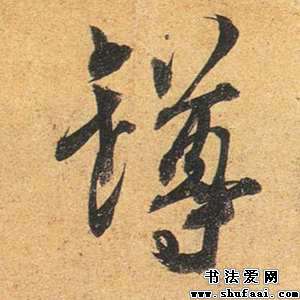 罇
书法爱网
www.shufaai.com